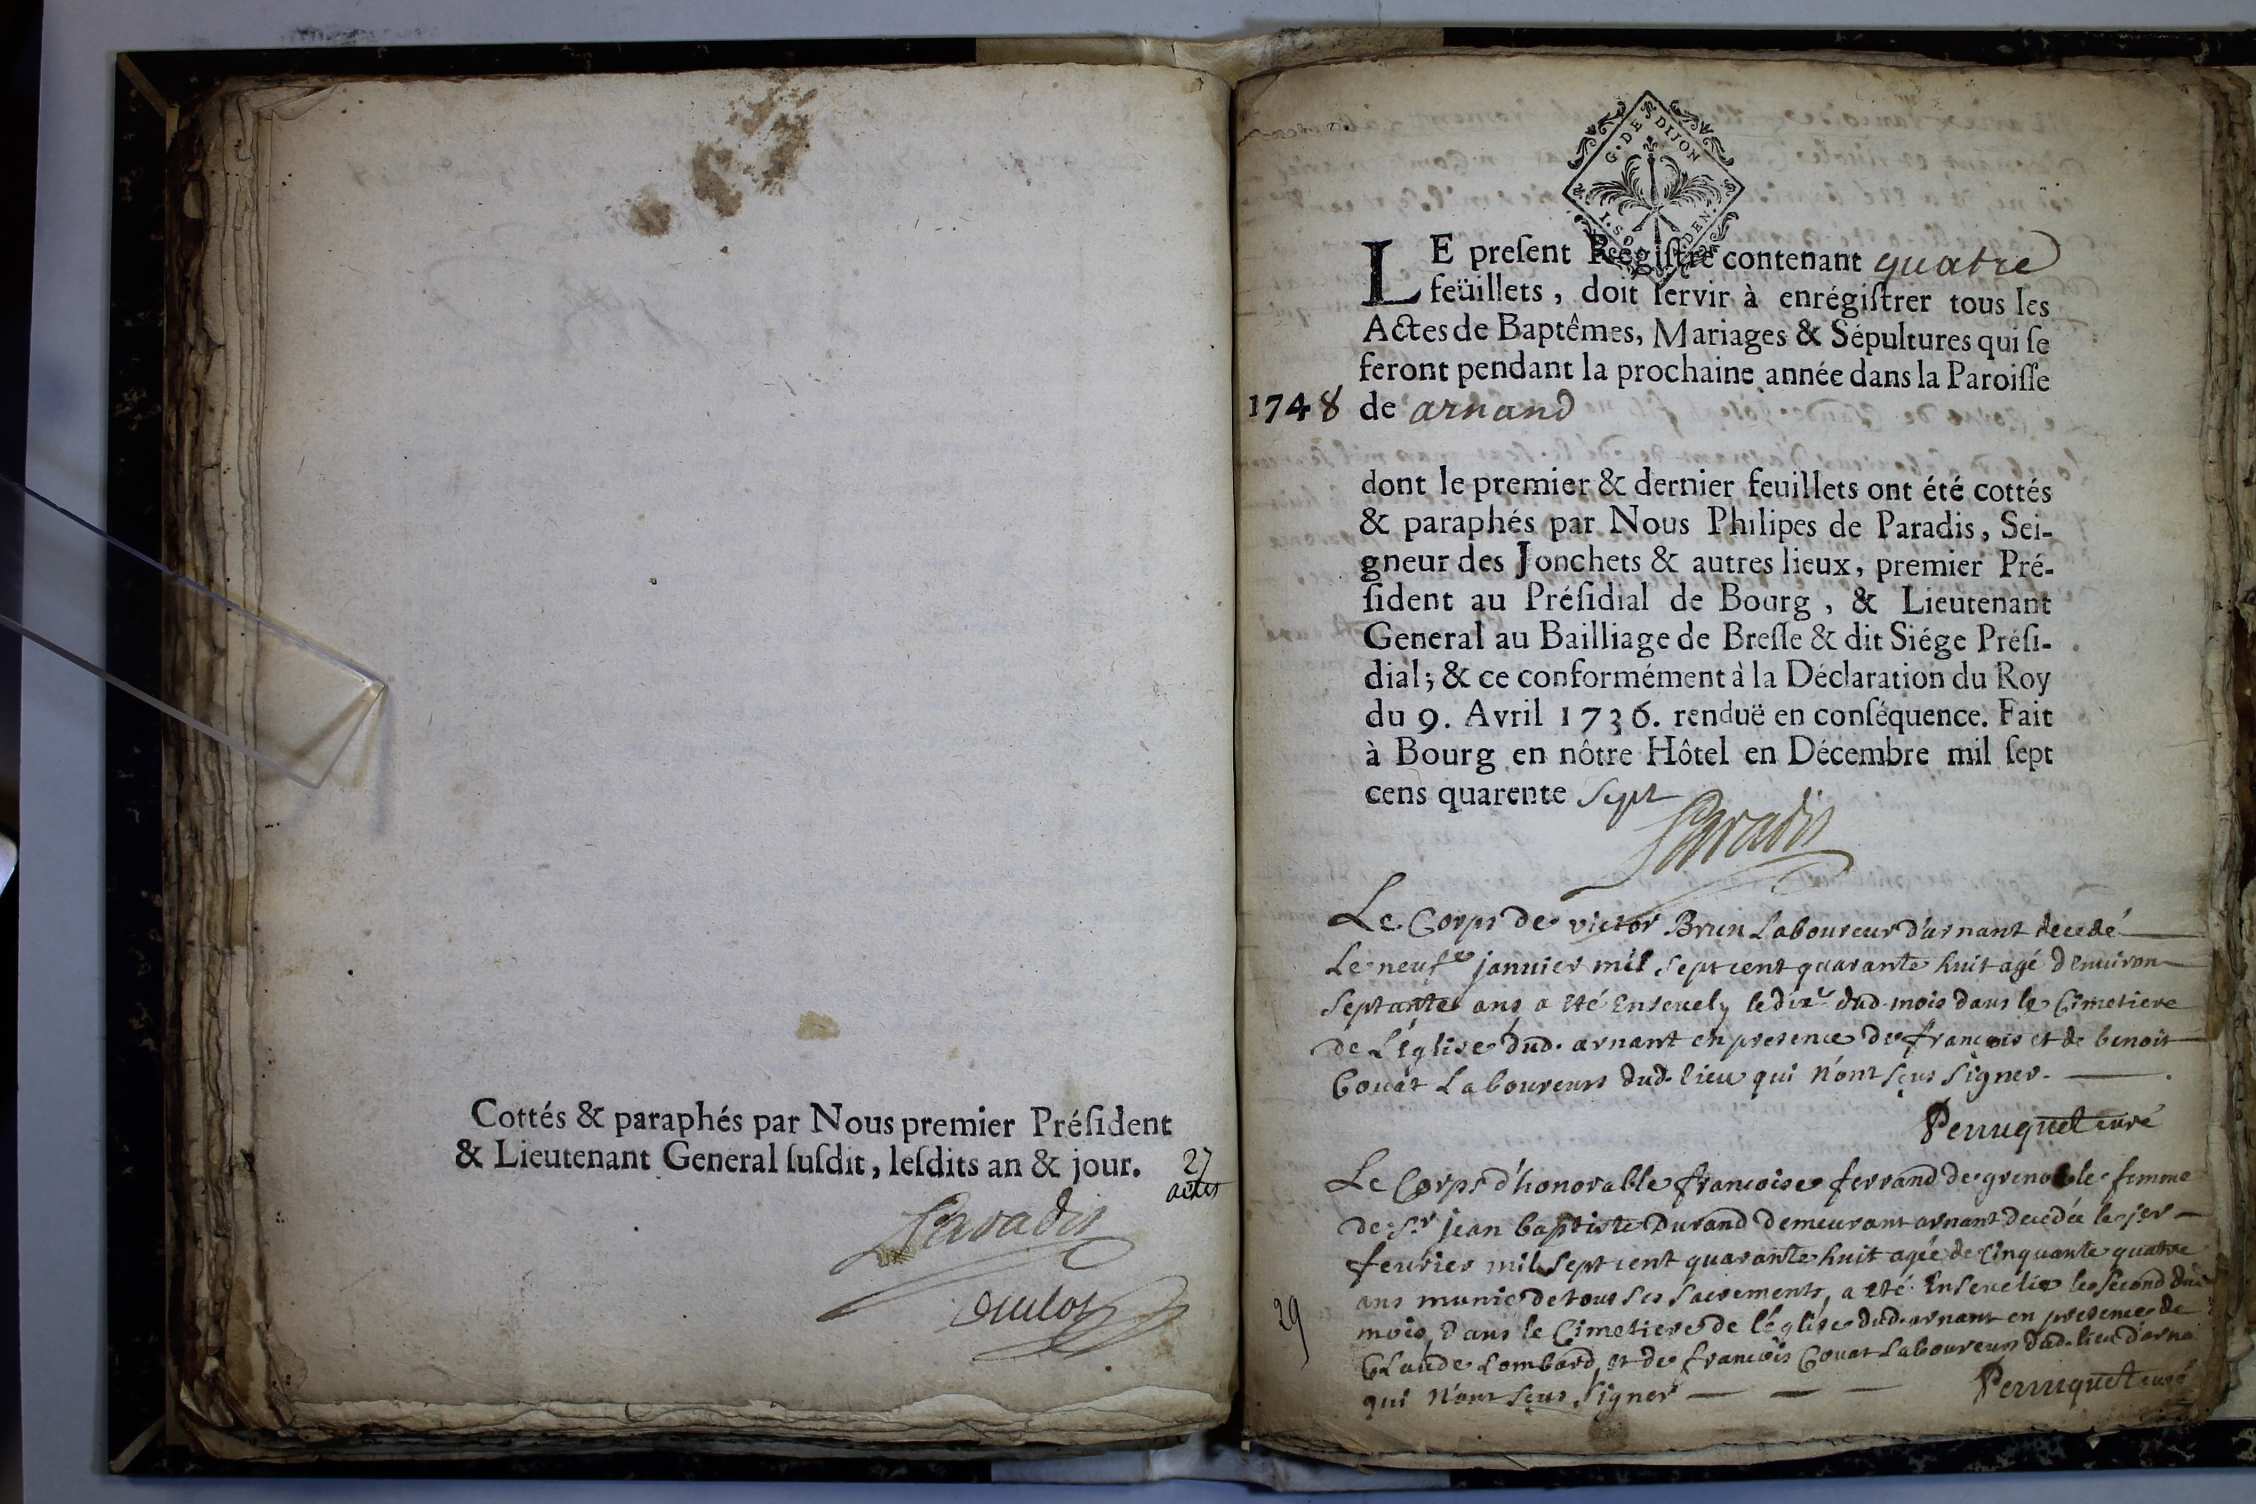 Cottés & paraphés par Nous premier Préſident
& Lieutenant General ſuſdit, leſdits an & jour.
27
actes
Paradis
G. DE DIJON
LE preſent Régiſtre contenant quatre
feüillets, doit ſervir à enrégiſtrer tous les
Actes de Baptêmes, Mariages & Sépultures qui ſe
feront pendant la prochaine année dans la Paroiſſe
1748 de arnand
dont le premier & dernier feuillets ont été cottés
& paraphés par Nous Philipes de Paradis, Sei-
gneur des Jonchets & autres lieux, premier Pré-
ſident au Préſidial de Bourg, & Lieutenant
General au Bailliage de Breſſe & dit Siége Préſi-
dial; & ce conformément à la Déclaration du Roy
du 9. Avril 1736. renduë en conſéquence. Fait
à Bourg en nôtre Hôtel en Décembre mil ſept
cens quarente Sept
Paradis
Le Corps de victor Brun Laboureur d'arnant decedé
Le neufe janvier mil sept cent quarante huit agé d'environ
septante ans a eté Ensevely le dixe dud. mois dans le Cimetiere
de L'église dud. arnant en presence de françois et de benoit
Gouat Laboureurs dud. lieu qui n'ont sçus signer.
Perruquet curé
Le Corps d'honorable francoise ferrand de grenoble femme
de Sr jean baptiste Durand demeurant arnant decedée le 1er
fevrier mil sept cent quarante huit agée de Cinquante quatre
ans munie de tous ses sacrements, a eté Ensevelie le second dud
mois, dans le Cimetiere de l'église dud. arnant en presence de
29
Claude Lombard, et de francois Gouat Laboureurs dud. lieu d'arna
qui n'ont sçus signer
Perruquet curé